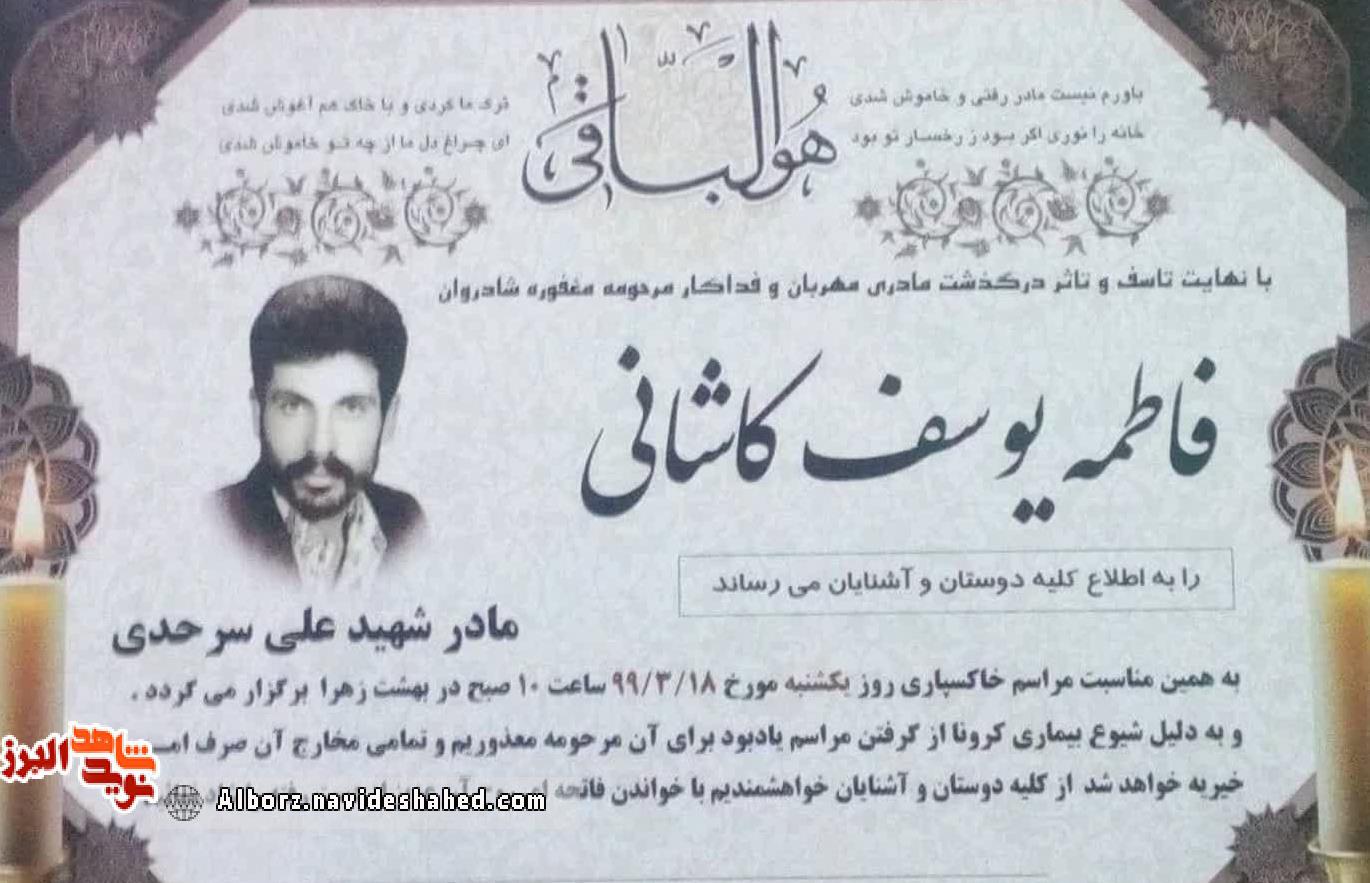 هوالباقی
باورم نیست مادر رفتی و خاموش شدی
ترک ما کردی و با خاک هم آغوش شدی
خانه را نوری اگر بود ز رخسار تو بود
ای چراغ دل ما از چه تو خاموش شدی
با نهایت تاسف و تاثر درگذشت مادری مهربان و فداکار مرحومه مغفوره شادروان
فاطمه یوسف کاشانی
را به اطلاع کلیه دوستان و آشنایان می رساند
مادر شهید علی سرحدی
به همین مناسبت مراسم خاکسپاری روز یکشنبه مورخ ۹۹/۳/۱۸ ساعت ۱۰ صبح در بهشت زهرا برگزار می گردد .
و به دلیل شیوع بیماری کرونا از گرفتن مراسم یادبود برای آن مرحومه معذوریم و تمامی مخارج آن صرف
خیریه خواهد شد از کلیه دوستان و آشنایان خواهشمندیم با خواندن فاتحه
نوید شاهد البرز
Alborz.navideshahed.com